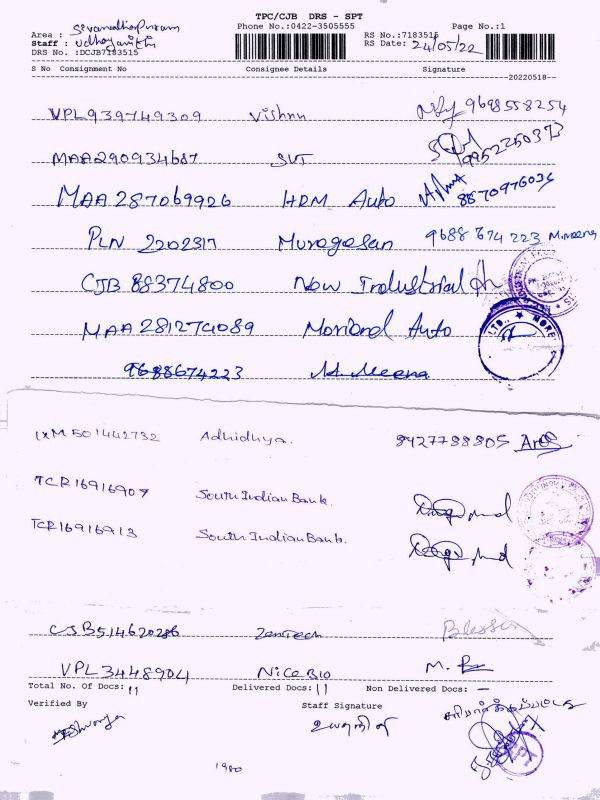 TPC/CJB DRS - SPT
Phone No.:0422-3505555
Page No.:1
Area : Sivanandhapuram
RS No.:7183515
Staff : Udhayanithi
RS Date: 24/05/22
DRS No. :DCJB7183515
S No Consignment No Consignee Details Signature
20220518
VPL939749309 Vishnu 9698558254
MAA290934687 SVT 9952250373
MAA287069926 HDM Auto 8870976036
PLN 2202317 Murugesan 9688 674 223 M.meena
CJB 88374800 New Industrial
MAA 281274089 Morional Auto
LTD., ★ MORE
9688674223 M. Meena
IXM501442732 Adhidhya. 9427788805
TCR16916907 South Indian Bank.
TCR16916913 South Indian Bank.
CJB514620286 Zentech Blessen
VPL34489704 Nice Bio M.
Total No. Of Docs: 11 Delivered Docs: 11 Non Delivered Docs: —
Verified By Staff Signature சரிபார்க்கப்பட்டது
உதயநிதி
SPT
1980